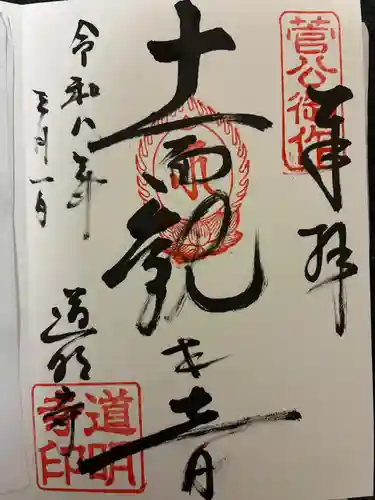 奉拝
菅公御作
十一面観世音
令和八年
三月一日
道明寺
道明寺印